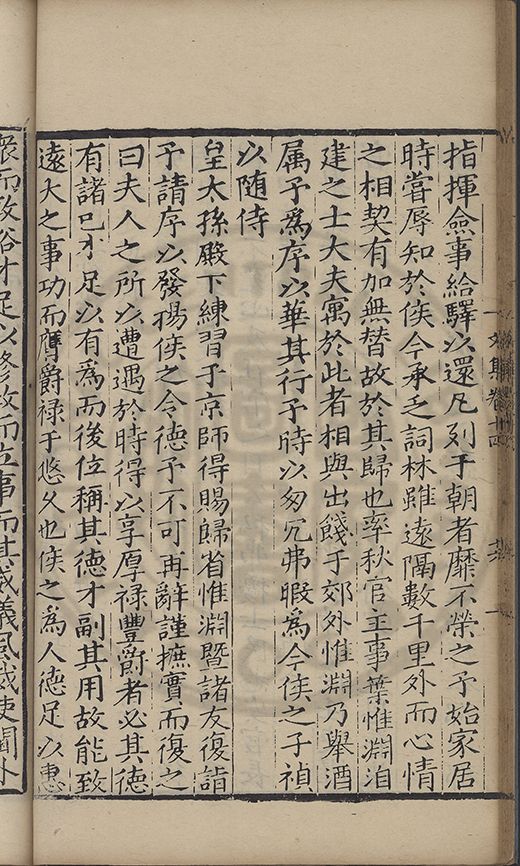 指揮僉事給驛以還凡列于朝者靡不榮之予始家居
時嘗辱知於侯今承乏詞林雖遠隔數千里外而心情
之相契有加無替故於其歸也率秋官主事葉惟淵洎
建之士大夫寓於此者相與出餞于郊外惟淵乃舉酒
属予為序以華其行予時以匆冗弗暇為今侯之子禎
以随侍
皇太孫殿下練習于京師得賜歸省惟淵暨諸友復詣
予請序以發揚侯之令德予不可再辭謹摭實而復之
曰夫人之所以遭遇於時得以享厚祿豐爵者必其德
有諸已才足以有為而後位稱其德才副其用故能致
遠大之事功而膺爵禄于悠久也侯之為人德足以惠
衆而敦俗才足以修政而立事而其威儀風
文集卷十四